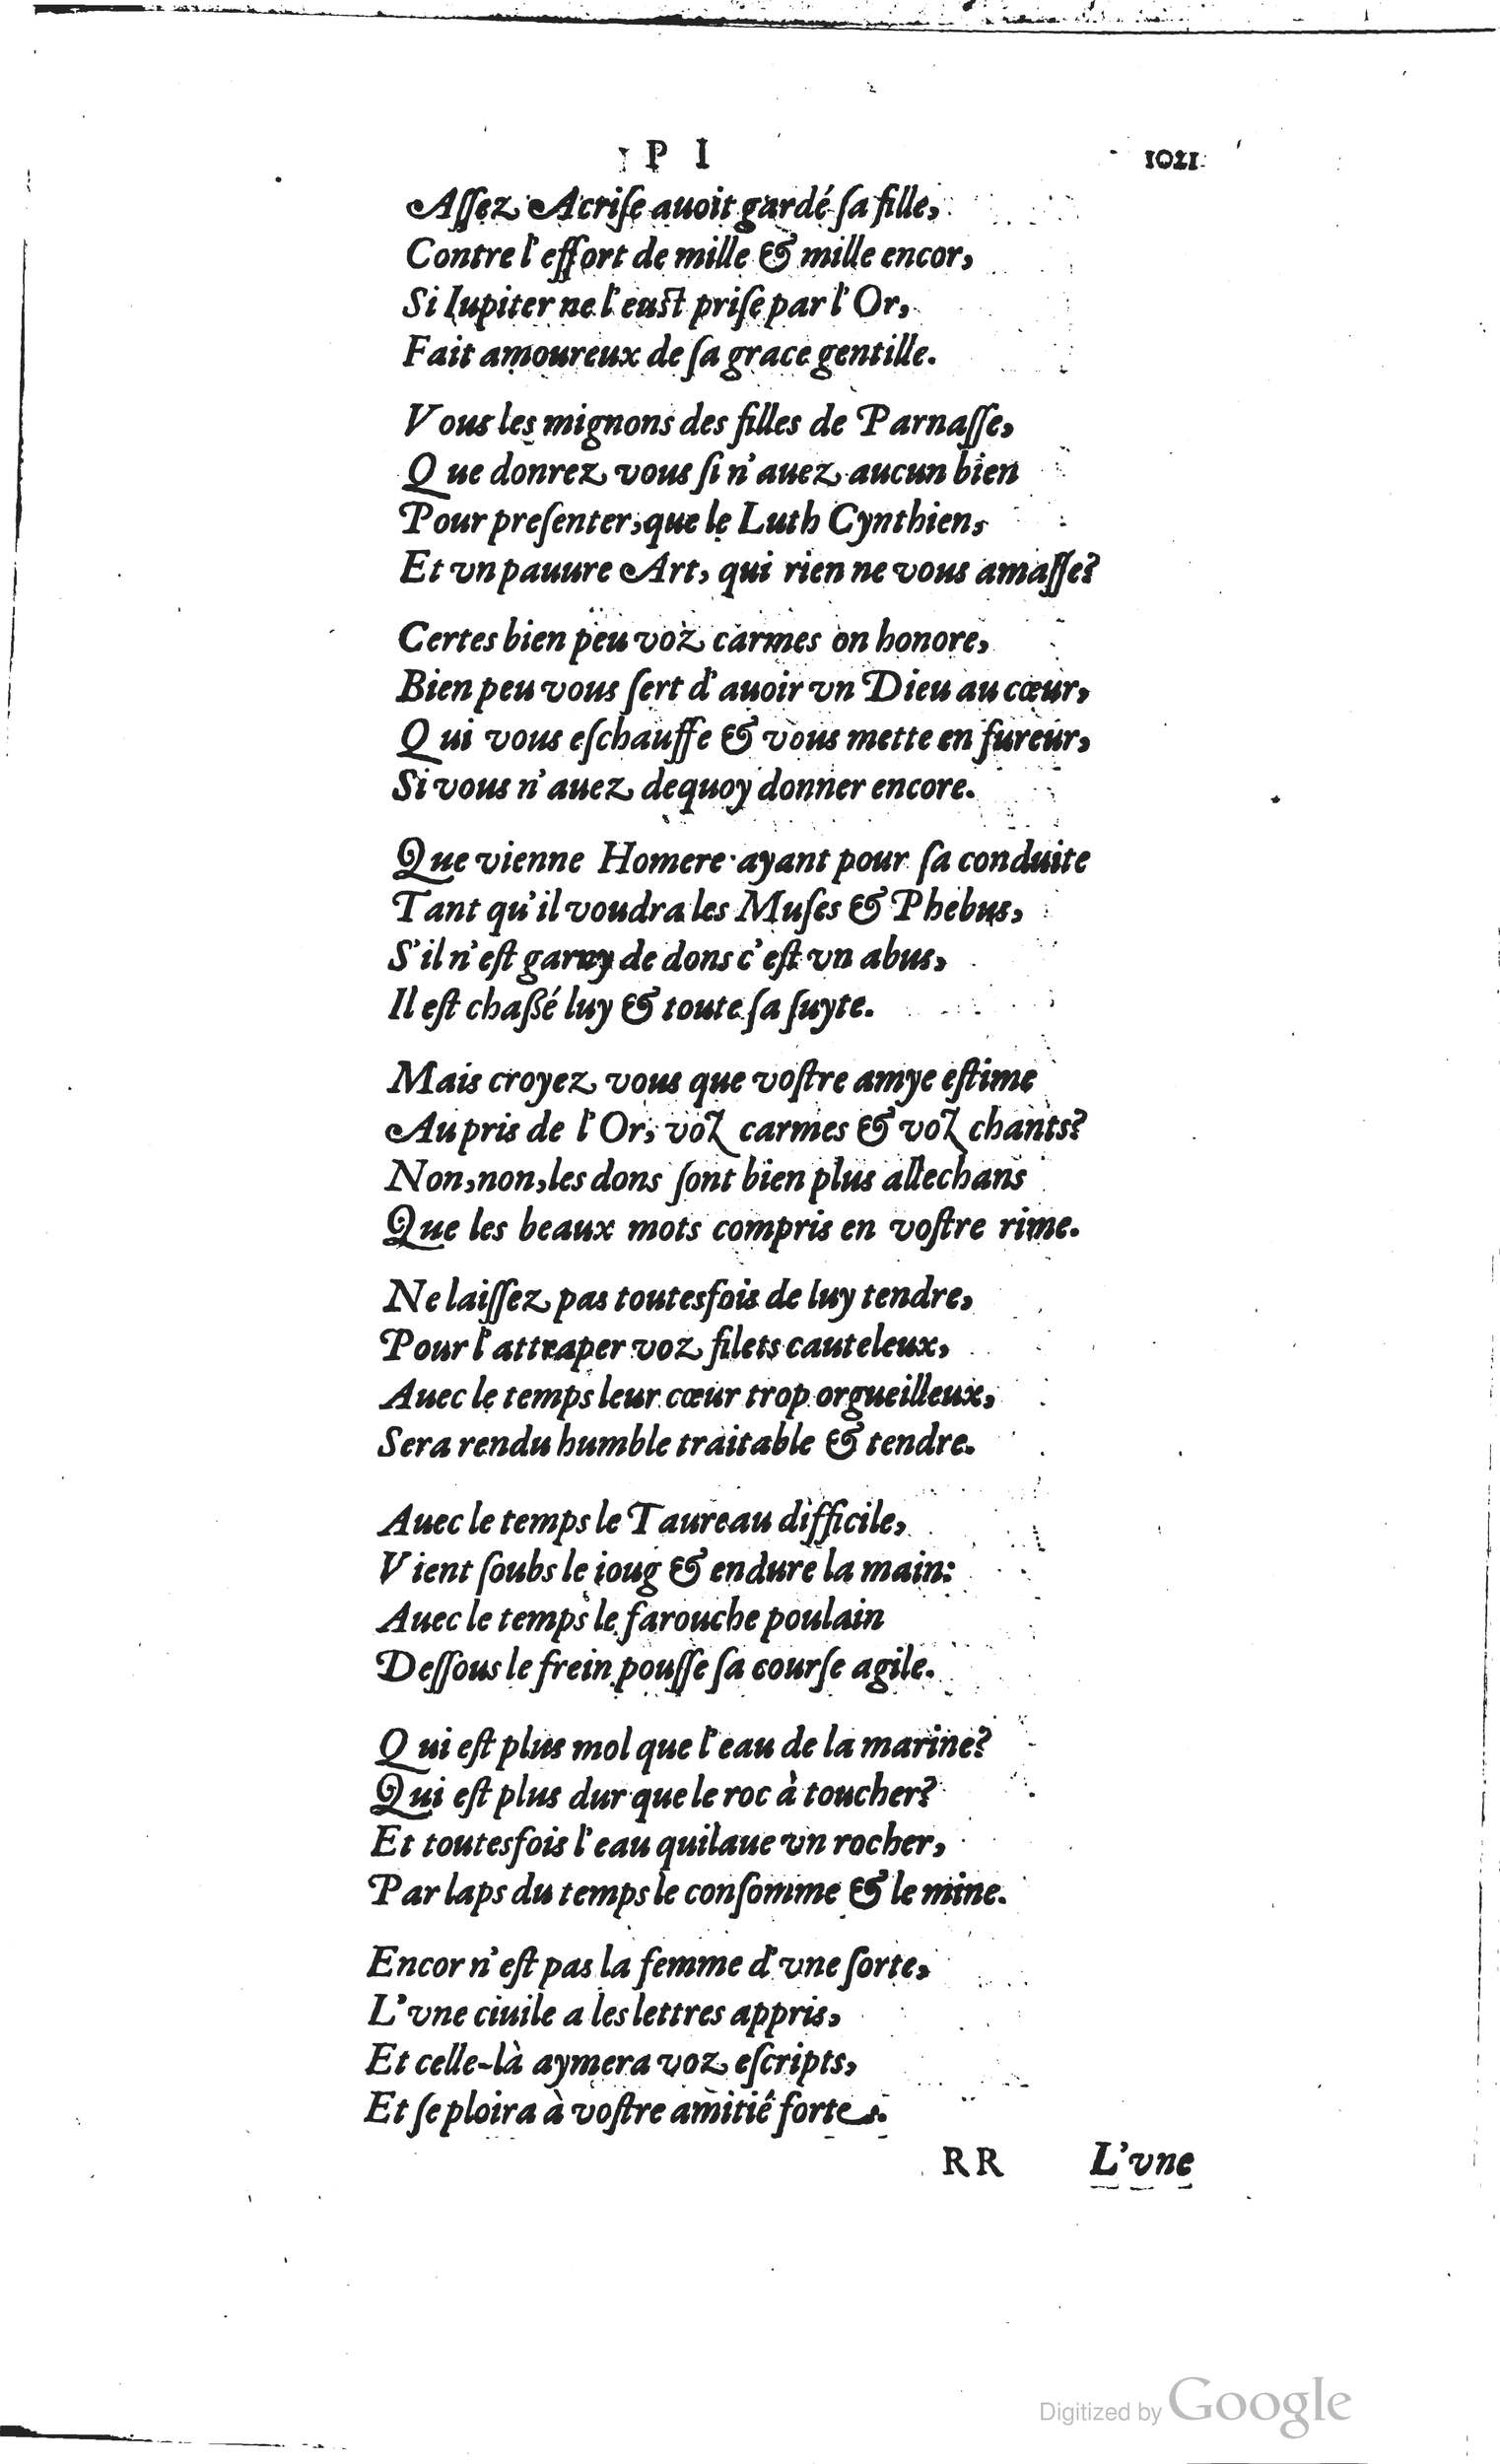 P I 1021
Aſſez Acriſe auoit gardé ſa fille,
Contre l'effort de mille & mille encor,
Si Iupiter ne l'eust priſe par l'Or,
Fait amoureux de ſa grace gentille.
Vous les mignons des filles de Parnaſſe,
Que donrez vous ſi n'auez aucun bien
Pour preſenter, que le Luth Cynthien,
Et vn pauure Art, qui rien ne vous amaſſe?
Certes bien peu voz carmes on honore,
Bien peu vous ſert d'auoir vn Dieu au cœur,
Qui vous eſchauffe & vous mette en fureur,
Si vous n'auez dequoy donner encore.
Que vienne Homere ayant pour ſa conduite
Tant qu'il voudra les Muſes & Phebus,
S'il n'eſt garny de dons c'eſt vn abus,
Il eſt chaßé luy & toute ſa ſuyte.
Mais croyez vous que voſtre amye eſtime
Au pris de l'Or, voz carmes & voz chants?
Non, non, les dons ſont bien plus allechans
Que les beaux mots compris en voſtre rime.
Ne laiſſez pas toutesfois de luy tendre,
Pour l'attraper voz filets cauteleux,
Auec le temps leur cœur trop orgueilleux,
Sera rendu humble traitable & tendre.
Auec le temps le Taureau difficile,
Vient ſoubs le ioug & endure la main:
Auec le temps le farouche poulain
Deſſous le frein pouſſe ſa courſe agile.
Qui eſt plus mol que l'eau de la marine?
Qui eſt plus dur que le roc à toucher?
Et toutesfois l'eau qui laue vn rocher,
Par laps du temps le conſomme & le mine.
Encor n'eſt pas la femme d'vne ſorte,
L'vne ciuile a les lettres appris,
Et celle-là aymera voz eſcripts,
Et ſe ploira à voſtre amitié forte.
RR L'vne
Digitized by Google